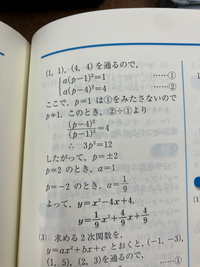 (1, 1), (4, 4) を通るので,
{a(p−1)²=1 ……①
a(p−4)²=4 ……②
ここで, p=1 は①をみたさないので
p≠1. このとき, ②÷①より
(p−4)²/(p−1)²=4
∴ 3p²=12
したがって, p=±2
p=2 のとき, a=1
p=−2 のとき, a=1/9
よって, y=x²−4x+4,
y=1/9x²+4/9x+4/9
(3) 求める2次関数を,
y=ax²+bx+c とおくと, (−1, −3),
(1, 5), (2, 3)を通るので,
……①